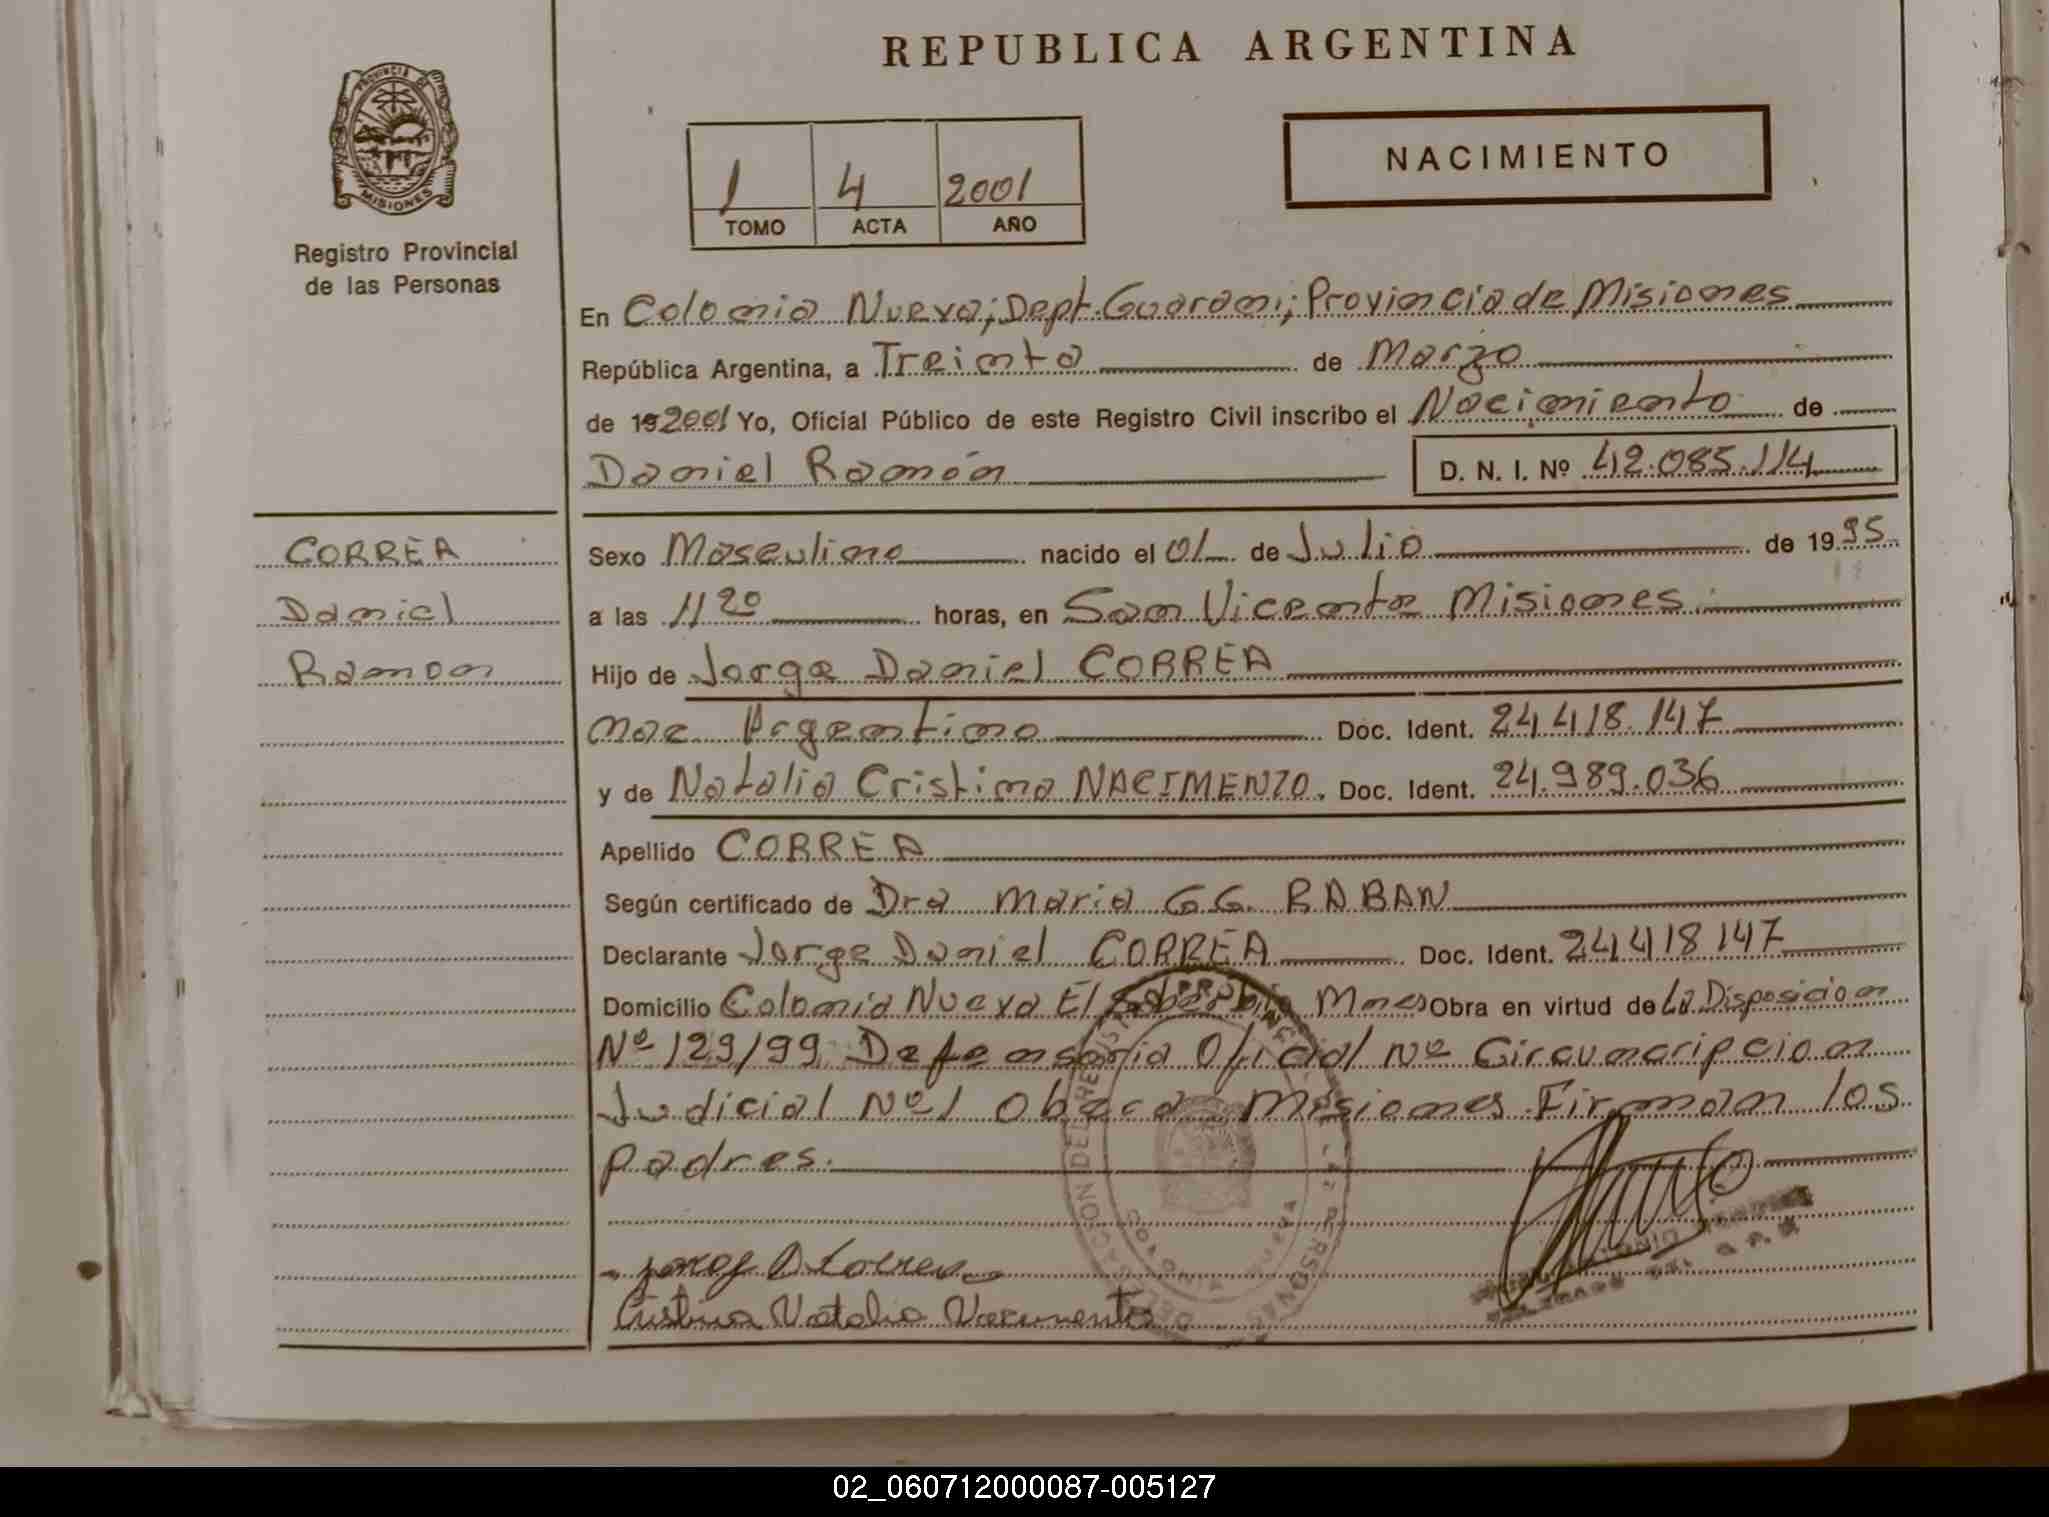 REPUBLICA ARGENTINA
PROVINCIA DE
MISIONES
Registro Provincial
de las Personas
1 4 2001
TOMO ACTA AÑO
NACIMIENTO
En Colonia Nueva; Dept. Guarani; Provincia de Misiones
República Argentina, a Treinta de Marzo
de 192001 Yo, Oficial Público de este Registro Civil inscribo el Nacimiento de
Daniel Ramón D. N. I. Nº 42.085.114
CORREA
Daniel
Ramon
Sexo Masculino nacido el 01 de Julio de 1995
a las 11 20 horas, en San Vicente Misiones
Hijo de Jorge Daniel CORREA
nac Argentino Doc. Ident. 24 418.147
y de Natalia Cristina NACIMENTO. Doc. Ident. 24.989.036
Apellido CORREA
Según certificado de Dra Maria G.G. RABAN
Declarante Jorge Daniel CORREA Doc. Ident. 24 418 147
Domicilio Colonia Nueva El Soberbio Mnes Obra en virtud de La Disposicion
Nº 129/99 Defensoria Oficial Nº Circunscripcion
Judicial Nº1 Obera Misiones Firman los
padres.
Jorge D Correa
Cristina Natalia Nacimento
02_060712000087-005127